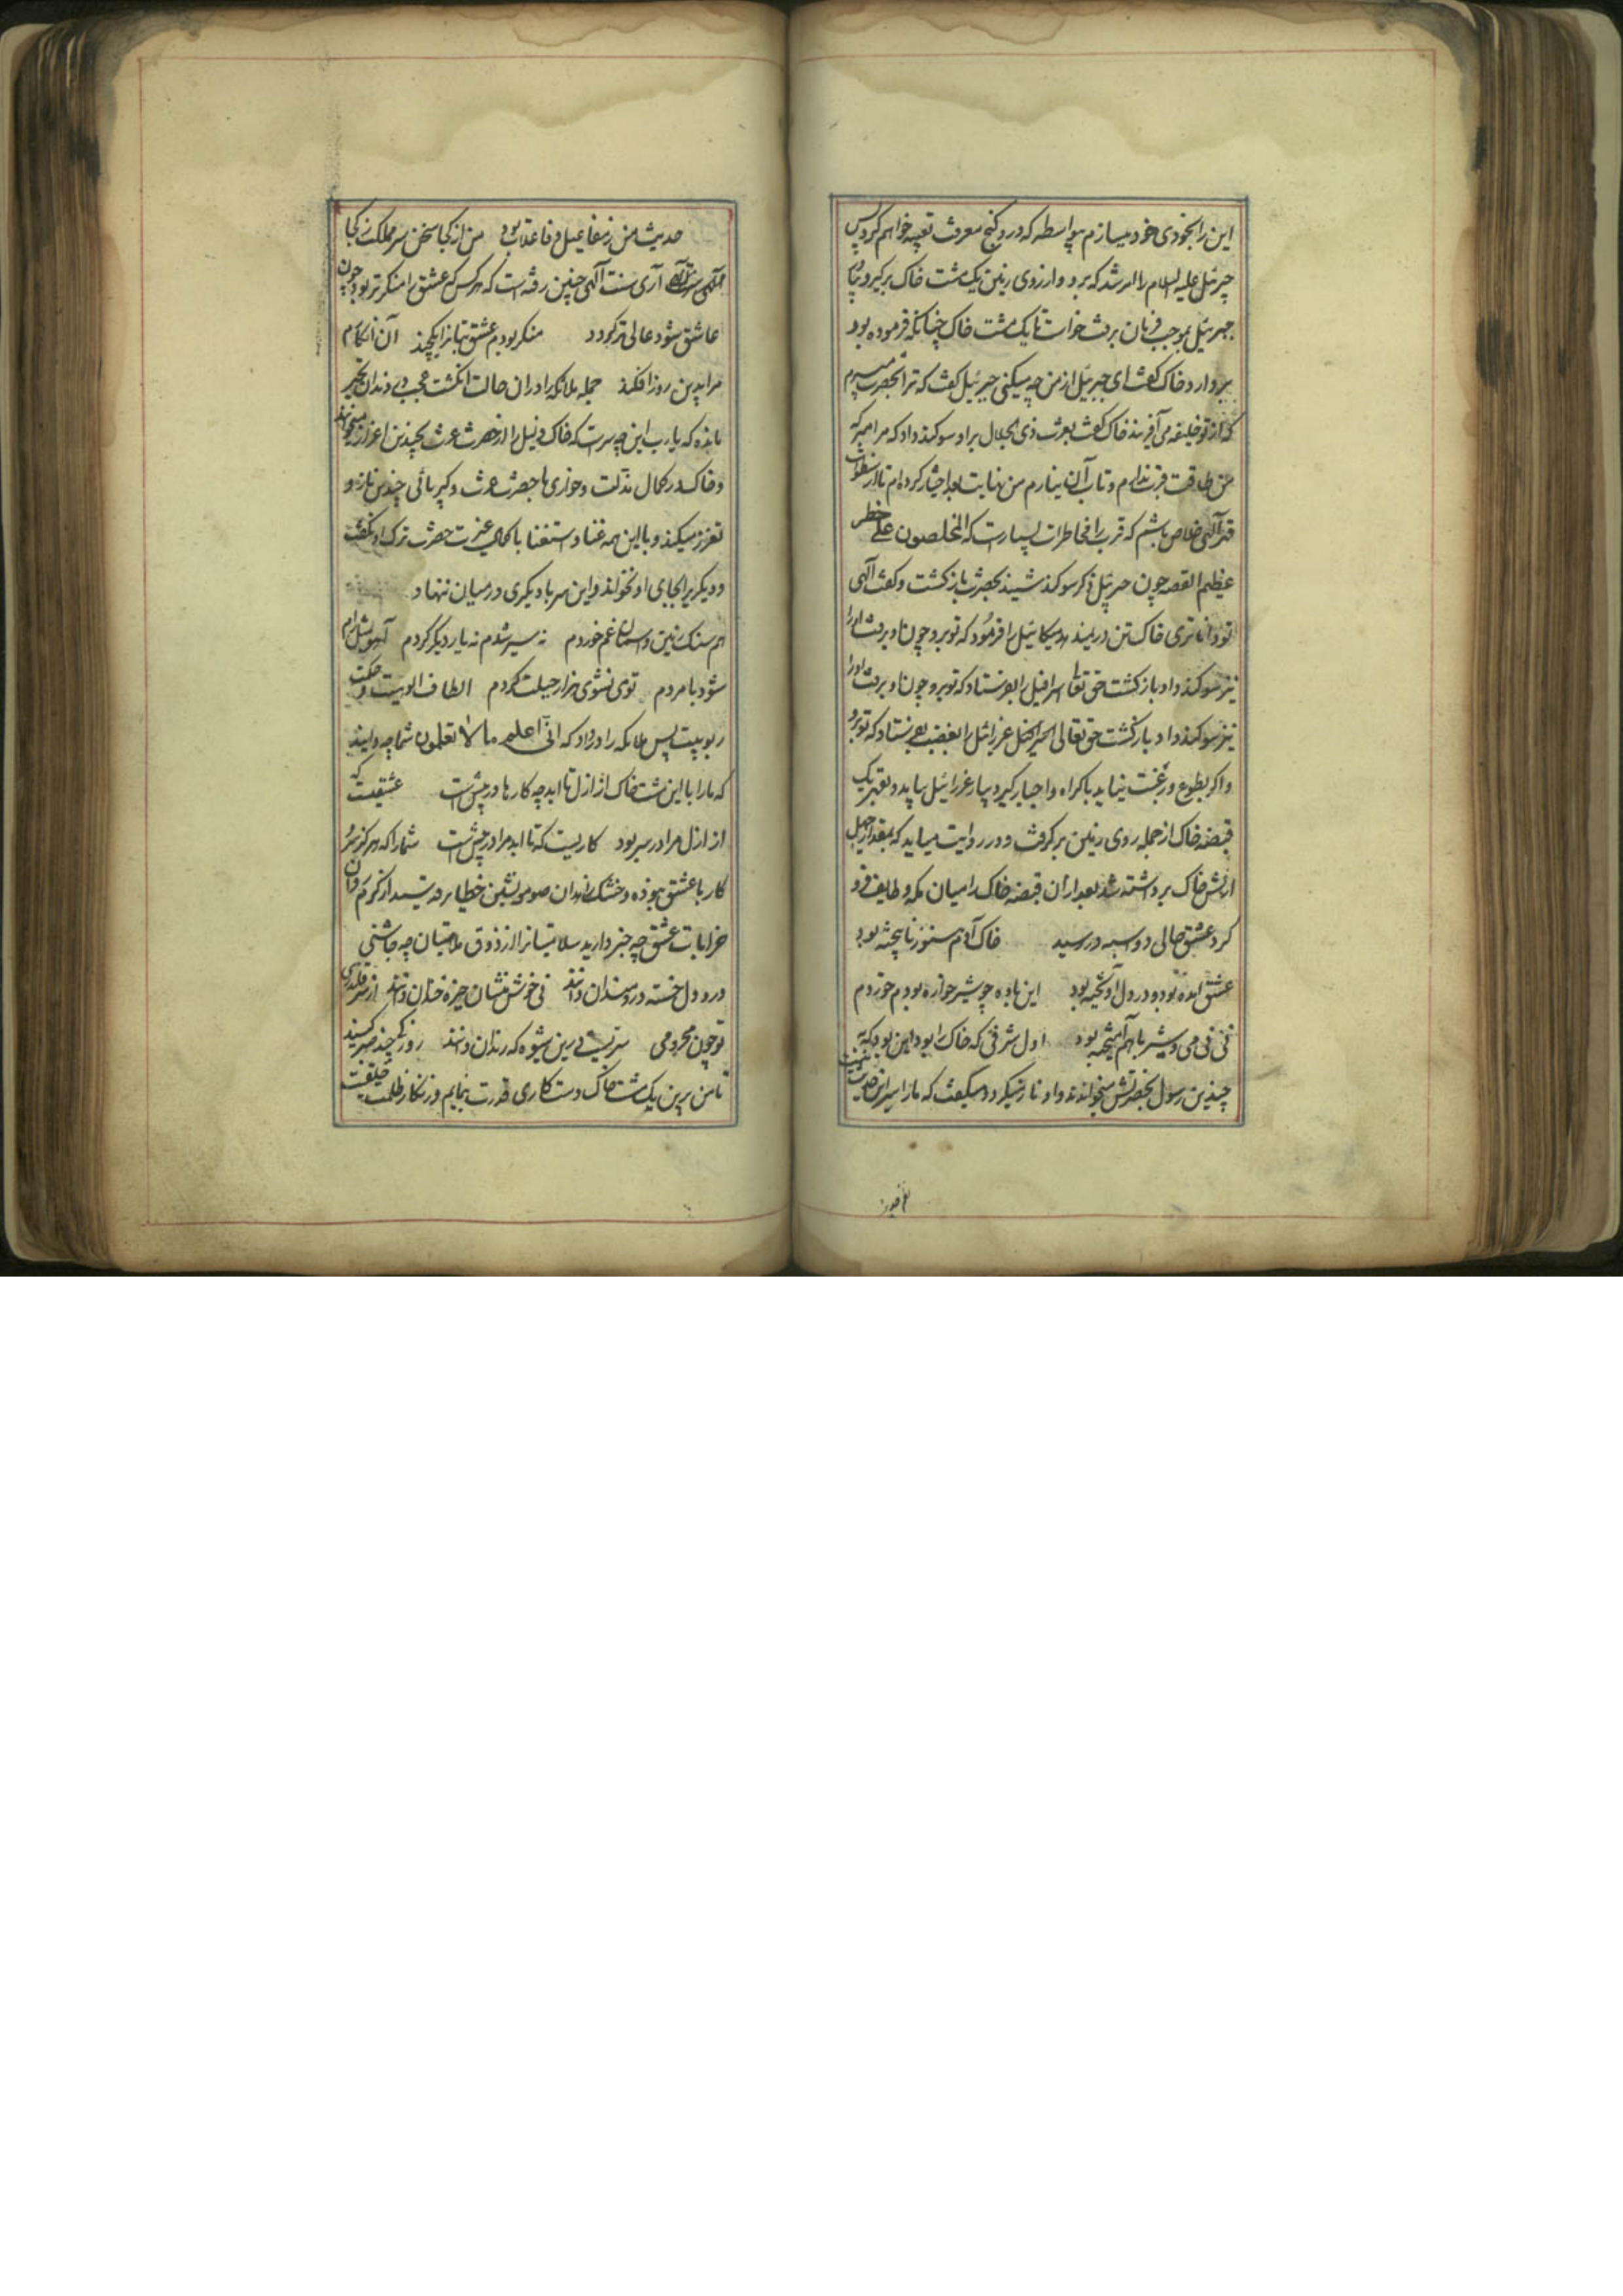 این را بخودی خود میسازم بیواسطه که درو گنج معرفت تعبیه خواهم کرد پس
جبرئیل علیه السلام را امر شد که برو و از روی زمین یک مشت خاک برگیر و بیار
جبرئیل بموجب فرمان برفت خواست تا یک مشت خاک چنانکه فرموده بود
بردارد خاک گفت ای جبرئیل از من چه میکنی جبرئیل گفت که ترا بحضرت میبرم
که از تو خلیفه می آفریند خاک گفت بعزت ذی الجلال برا و سوکند داد که مرا مبر که
من طاقت قرب ندارم و تاب آن نیارم من نهایت بعد اختیار کرده ام تا از سطوات
قهر الهی خلاص باشم که قرب را مخاطرات بسیارست که المخلصون علی خطر
عظیم القصه چون جبرئیل ذکر سوکند شنید بحضرت باز کشت و گفت الهی
تو داناتری خاک تن در نمیدهد میکائیل را فرمود که تو برو چون او برفت او را
نیز سوکند داد باز کشت حق تعالی اسرافیل را بفرستاد که تو برو چون او برفت او را
نیز سوکند داد باز کشت حق تعالی عزرائیل را بفرستاد که تو برو
و اگر بطوع و رغبت نیاید باکراه و اجبار برگیر و بیار عزرائیل بیامد و بقهر یک
قبضه خاک از جمله روی زمین بر گرفت و در روایت میاید که بمقدار چهل
ارش خاک برداشته شد بعد از آن قبضه خاک را میان مکه و طایف فرو
کرد عشق حالی دو اسبه در رسید خاک آدم هنوز نابیخته بود
عشق آمده بود و در دل آویخته بود این باده چو شیر خواره بودم خوردم
نی نی می و شیر با هم آمیخته بود اول شرفی که خاک را بود این بود که به
چندین رسول بحضرتش میخواندند و او ناز میکرد و میگفت که ما را سر این حدیث نیست
حدیث من ز مفاعیل و فاعلات بود من از کجا سخن سر مملکت ز کجا
آری سنت الهی چنین رفته است که هر کس که عشق را منکرتر بود چون
عاشق شود عالی تر گردد منکر بودم عشق بتان را یکچند آن انکارم
مرا بدین روز افکند جمله ملائکه را در ان حالت انکشت عجب در دندان تحیر
مانده که یا رب این چه سرست که خاک ذلیل را از حضرت عزت بچندین اعزاز میخوانند
و خاک در کمال مذلت و خواری با حضرت عزت و کبریائی چندین ناز و
تعزز میکند و با این همه غنا و استغنا با کمال غیرت حضرت ترک او نگفت
و دیگری را بجای او نخواند و این سر با دیگری در میان ننهاد
هم سنک زمین و آسمان غم خوردم نه سیر شدم نه یار دیگر کردم آهو بمثل رام
شود با مردم توی نشوی هزار حیلت کردم الطاف الوهیت و حکمت
ربوبیت بسر ملائکه را در داد که انی اعلم ما لا تعلمون شما چه دانید
که ما را با این مشت خاک از ازل تا ابد چه کارها در پیش ست عشقیست که
از ازل مرا در سر بود کاریست که تا ابد مرا در پیش ست شما را که هرگز سر و
کار با عشق نبوده و خشک زاهدان صومعه نشین خطایر قدسید از گرم روان
خرابات عشق چه خبر دارید سلامتیان را از ذوق ملامتیان چه چاشنی
درد دل خسته دردمندان دانند نی خوش منشان خیره خندان دانند از سر قلندری
تو چون محرومی سریست درین شیوه که رندان دانند روزکی چند صبر کنید
تا من برین یک مشت خاک دست کاری قدرت بنمایم و زنکار ظلمت خلقیت